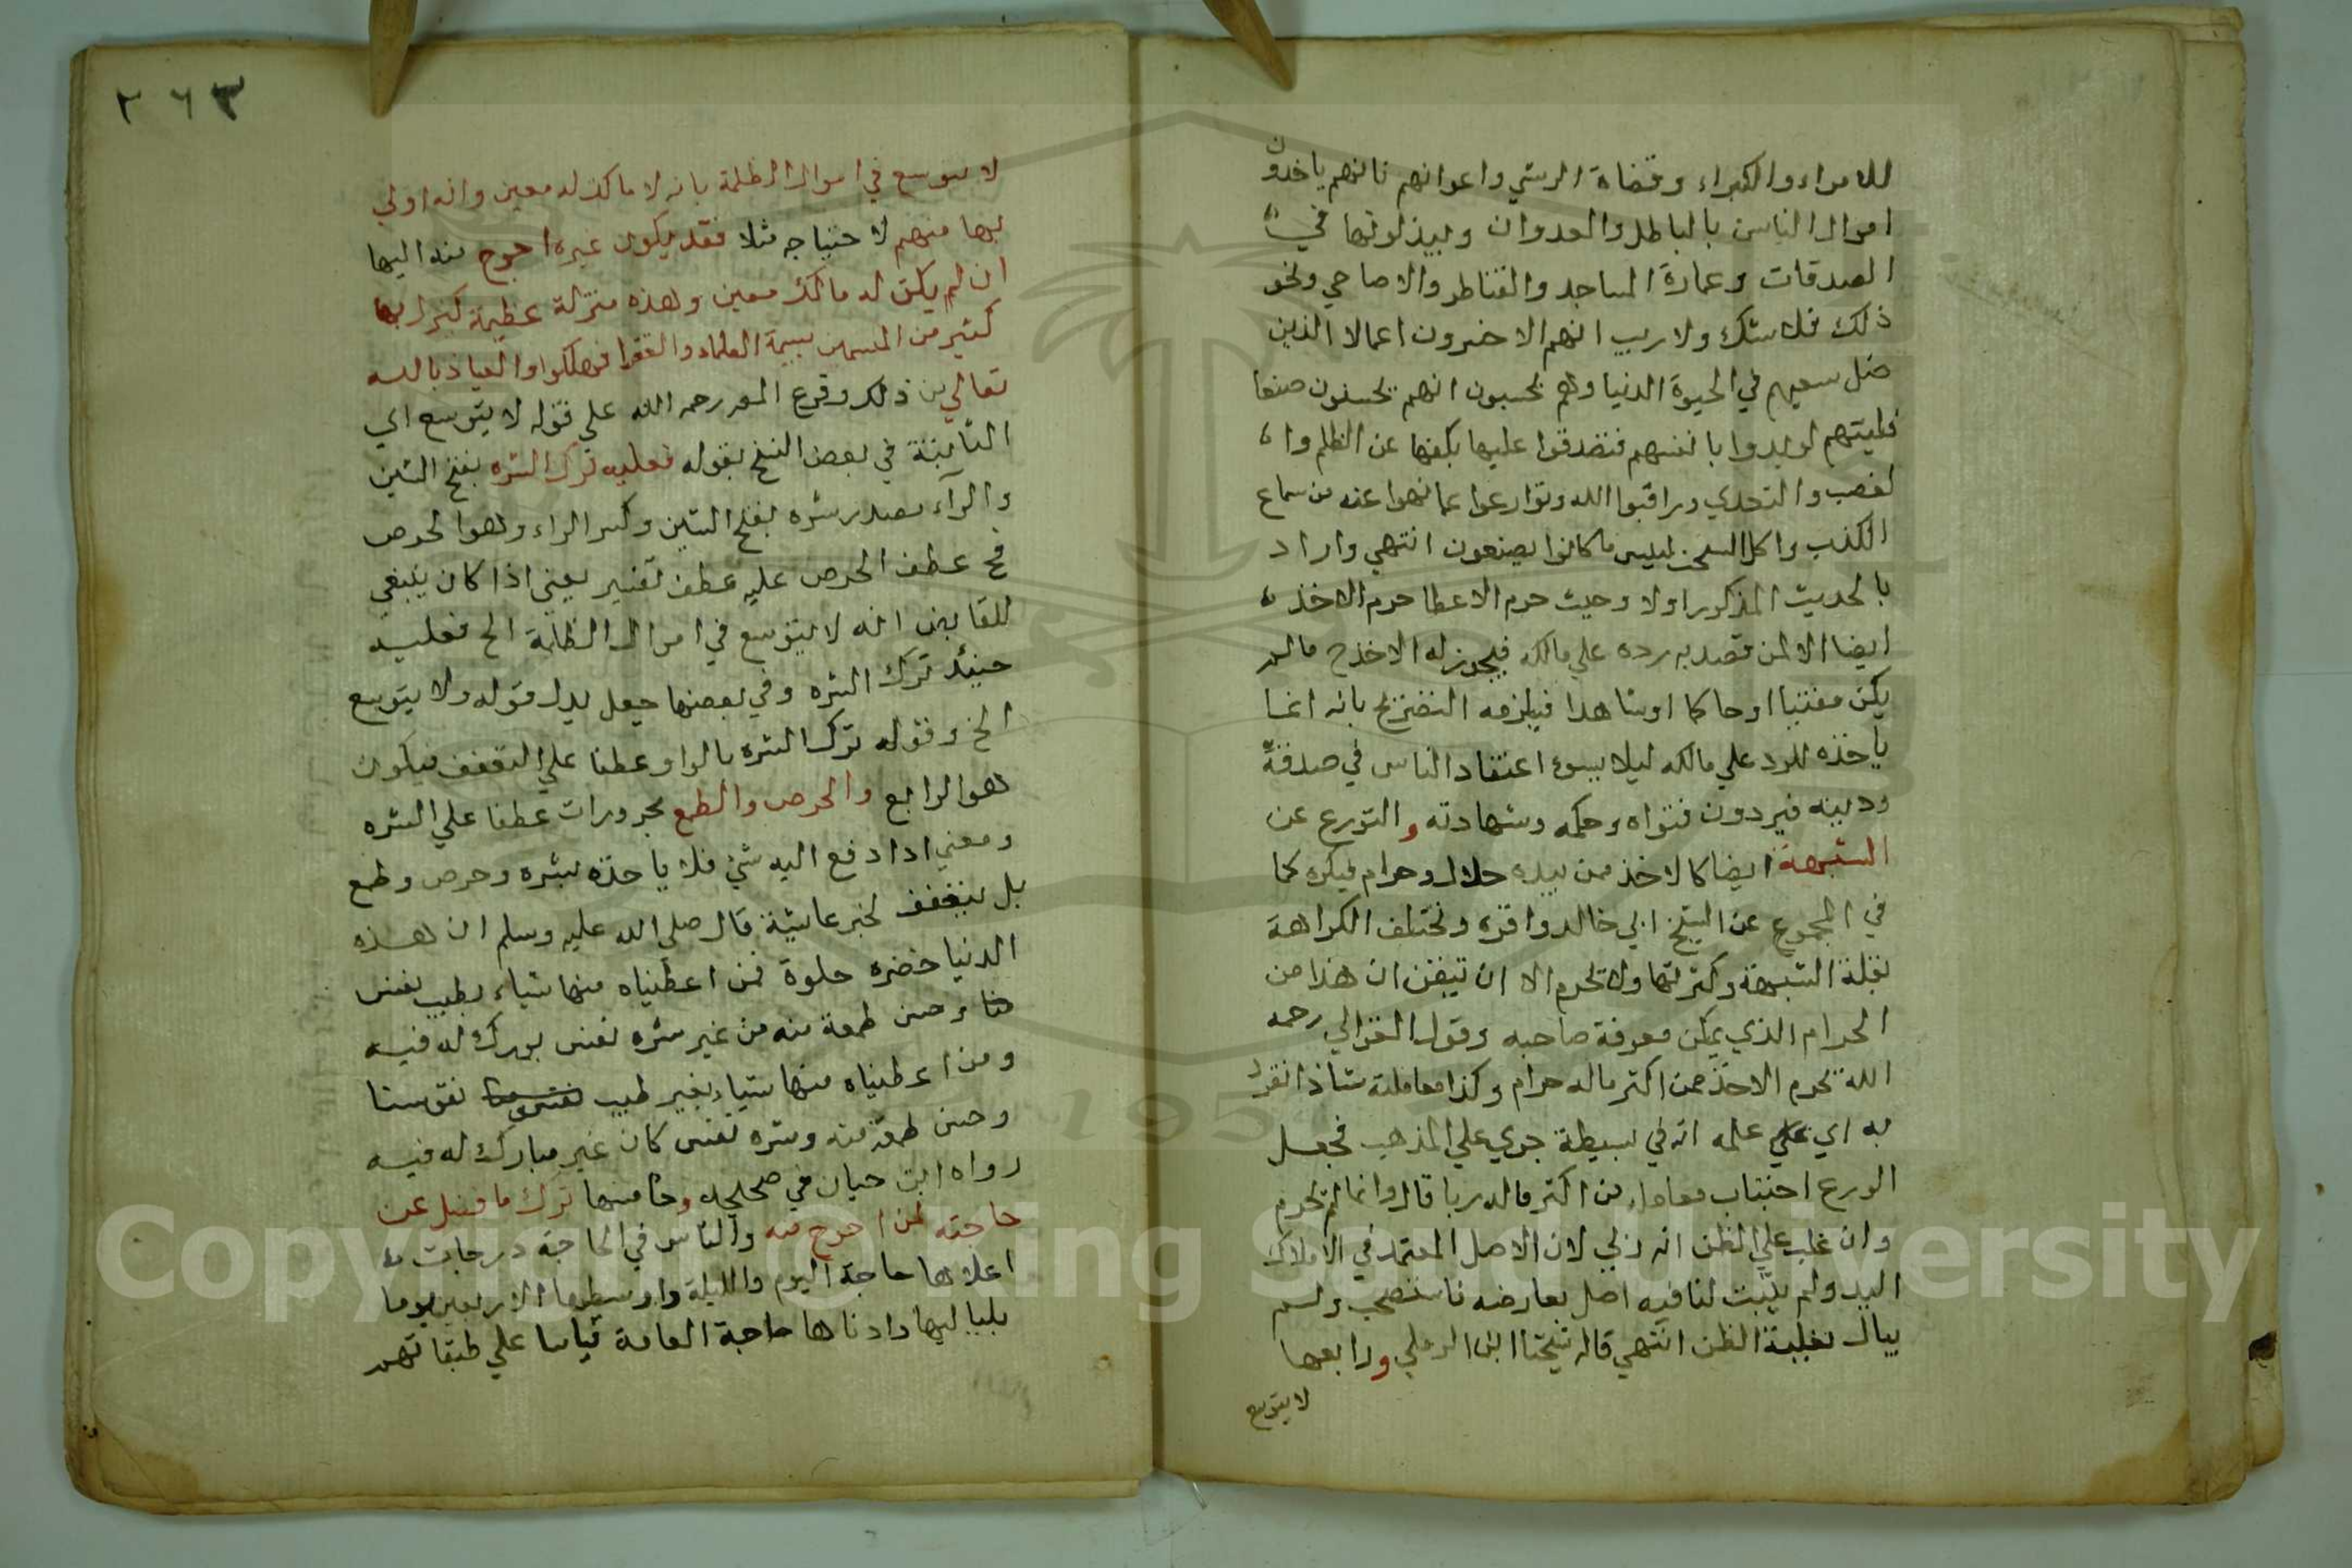 للامراء والكبراء وقضاة الرشي واعوانهم فانهم ياخذون
اموال الناس بالباطل والعدوان ويبذلونها في
الصدقات وعمارة المساجد والقناطر والاضاحي ونحو
ذلك فلا شك ولا ريب انهم الاخسرون اعمالا الذين
ضل سعيهم في الحيوة الدنيا وهم يحسبون انهم يحسنون صنعا
فليتهم لو بدوا بانفسهم فتصدقوا عليها بكفها عن الظلم وا
لغصب والتعدي وراقبوا الله وتوارعوا عما نهوا عنه من سماع
الكذب واكل السحت لبيس ما كانوا يصنعون انتهي واراد
بالحديث المذكور اولا وحيث حرم الاعطا حرم الاخذ
ايضا الا لمن قصد به رده علي مالكه فيجوز له الاخذ ح ما لم
يكن مفتيا او حاكما او شاهدا فيلزمه التصريح بانه انما
ياخذه للرد علي مالكه ليلا يسوء اعتقاد الناس في صدقه
ودينه فيردون فتواه وحكمه وشهادته والتورع عن
الشبهة ايضا كالاخذ ممن بيده حلال وحرام فيكره كما
في المجموع عن الشيخ ابي خالد واقره وتختلف الكراهة
بقلة الشبهة وكثرتها ولا تحرم الا ان تيقن ان هذا من
الحرام الذي يمكن معرفة صاحبه وقول الغزالي رحمه
الله يحرم الاخذ ممن اكثر ماله حرام وكذا معاملته شاذ انفرد
به اي علي علمه انه في بسيطة جري علي المذهب فجعل
الورع اجتناب معاملة من اكثر ماله ربا قال وانما لم يحرم
وان غلب علي الظن انه ربي لان الاصل المعتمد في الاملاك
اليد ولم يثبت لنا فيه اصل يعارضه فاستصحب ولم
يبال بغلبة الظن انتهي قاله شيخنا ابن الرملي ورابعها
لا يتوسع
٢٦٣
لا يتوسع في اموال الظلمة بانه لا مالك له معين وانه اولي
بها منهم لاحتياجه مثلا فقد يكون غيره احوج منه اليها
ان لم يكن له مالك معين وهذه منزلة عظيمة لنزل بها
كثير من بسيمة العلماء والفقرا فهلكوا والعياذ بالله
تعالي من ذلك وفرع المص رحمه الله علي قوله لا يتوسع اي
الثابتة في بعض النسخ بقوله فعليه ترك الشره بفتح الشين
والرآء مصدر شره بفتح الشين وكسر الراء وهو الحرص
فح عطف الحرص عليه عطف تفسير يعني اذا كان ينبغي
للقابض انه لا يتوسع في اموال الظلمة الخ فعليه
حينئذ ترك الشره وفي بعضها جعل بدل قوله ولا يتوسع
الخ وقوله ترك الشره بالواو عطفا علي التعفف فيكون
هو الرابع والحرص والطمع مجرورات عطفا علي الشره
ومعني اذا دفع اليه شئ فلا ياخذه بشره وحرص وطمع
بل بتعفف لخبر عائشة قال صلي الله عليه وسلم ان هذه
الدنيا خضره حلوة فمن اعطيناه منها شياء بطيب نفس
منا وحسن طعمة منه من غير شره نفس بورك له فيه
ومن اعطيناه منها شياء بغير طيب نفس منا
وحسن طعمة منه وشره نفس كان غير مبارك له فيه
رواه ابن حبان في صحيحه وخامسها ترك ما فضل عن
حاجته لمن احوج منه والناس في الحاجة درجات
اعلاها حاجة اليوم والليلة واوسطها الاربعين يوما
بلياليها وادناها حاجة العامة قياسا علي طبقاتهم
Copyright © King Saud University
1957